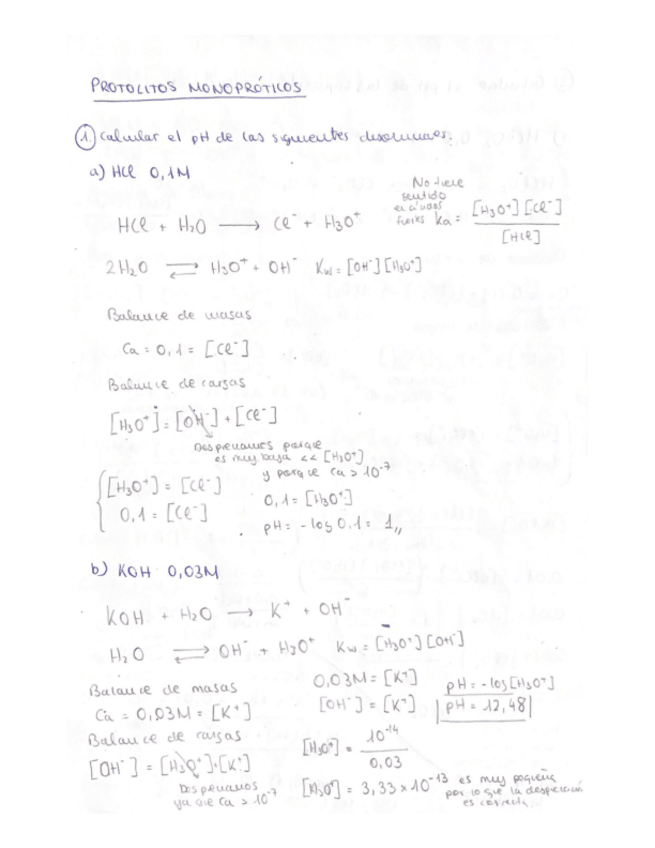 PROTOLITOS MONOPRÓTICOS
1. Calcular el pH de las siguientes disoluciones.
a) HCl 0,1M
No tiene sentido en ácidos fuertes Ka = [H₃O⁺][Cl⁻] / [HCl]
HCl + H₂O → Cl⁻ + H₃O⁺
2H₂O ⇌ H₃O⁺ + OH⁻ Kw = [OH⁻][H₃O⁺]
Balance de masas
Ca = 0,1 = [Cl⁻]
Balance de cargas
[H₃O⁺] = [OH⁻] + [Cl⁻]
Despreciamos porque
es muy baja << [H₃O⁺]
y porque Ca > 10⁻⁷
[H₃O⁺] = [Cl⁻] 0,1 = [H₃O⁺]
0,1 = [Cl⁻] pH = -log 0.1 = 1,,
b) KOH 0,03M
KOH + H₂O → K⁺ + OH⁻
H₂O ⇌ OH⁻ + H₃O⁺ Kw = [H₃O⁺][OH⁻]
Balance de masas 0,03M = [K⁺] pH = -log[H₃O⁺]
Ca = 0,03M = [K⁺] [OH⁻] = [K⁺] pH = 12,48
Balance de cargas [H₃O⁺] = 10⁻¹⁴ / 0,03
[OH⁻] = [H₃O⁺]+[K⁺]
Despreciamos
ya que Ca > 10⁻⁷
[H₃O⁺] = 3,33 × 10⁻¹³ es muy pequeña
por lo que la
es correcta